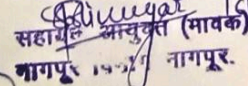 सहाय्यक आयुक्त (मावक)
नागपूर नागपूर.